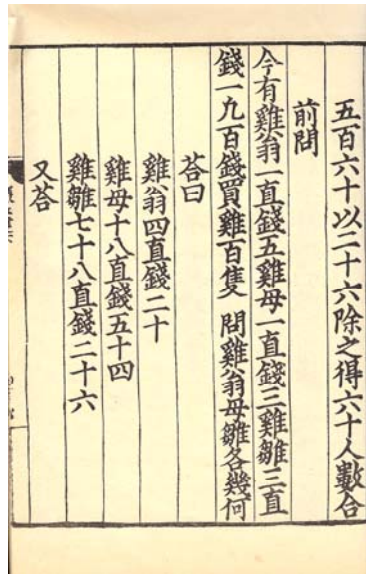 五百六十以二十六除之得六十人數合
前問
今有雞翁一直錢五雞母一直錢三雞雛三直
錢一九百錢買雞百隻 問雞翁母雛各幾何
荅曰
雞翁四直錢二十
雞母十八直錢五十四
雞雛七十八直錢二十六
又荅